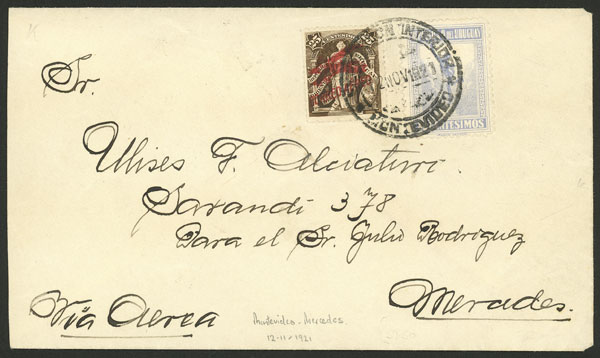 25 CENTESIMOS 25
URUGUAY
INTERIOR
NOV 1921
MONTEVIDEO
Sr.
Ulises F. Alciaturi.
Sarandí 378
Para el Sr. Julio Rodriguez
Mercedes.
Via Aerea
Montevideo - Mercedes
12-11-1921